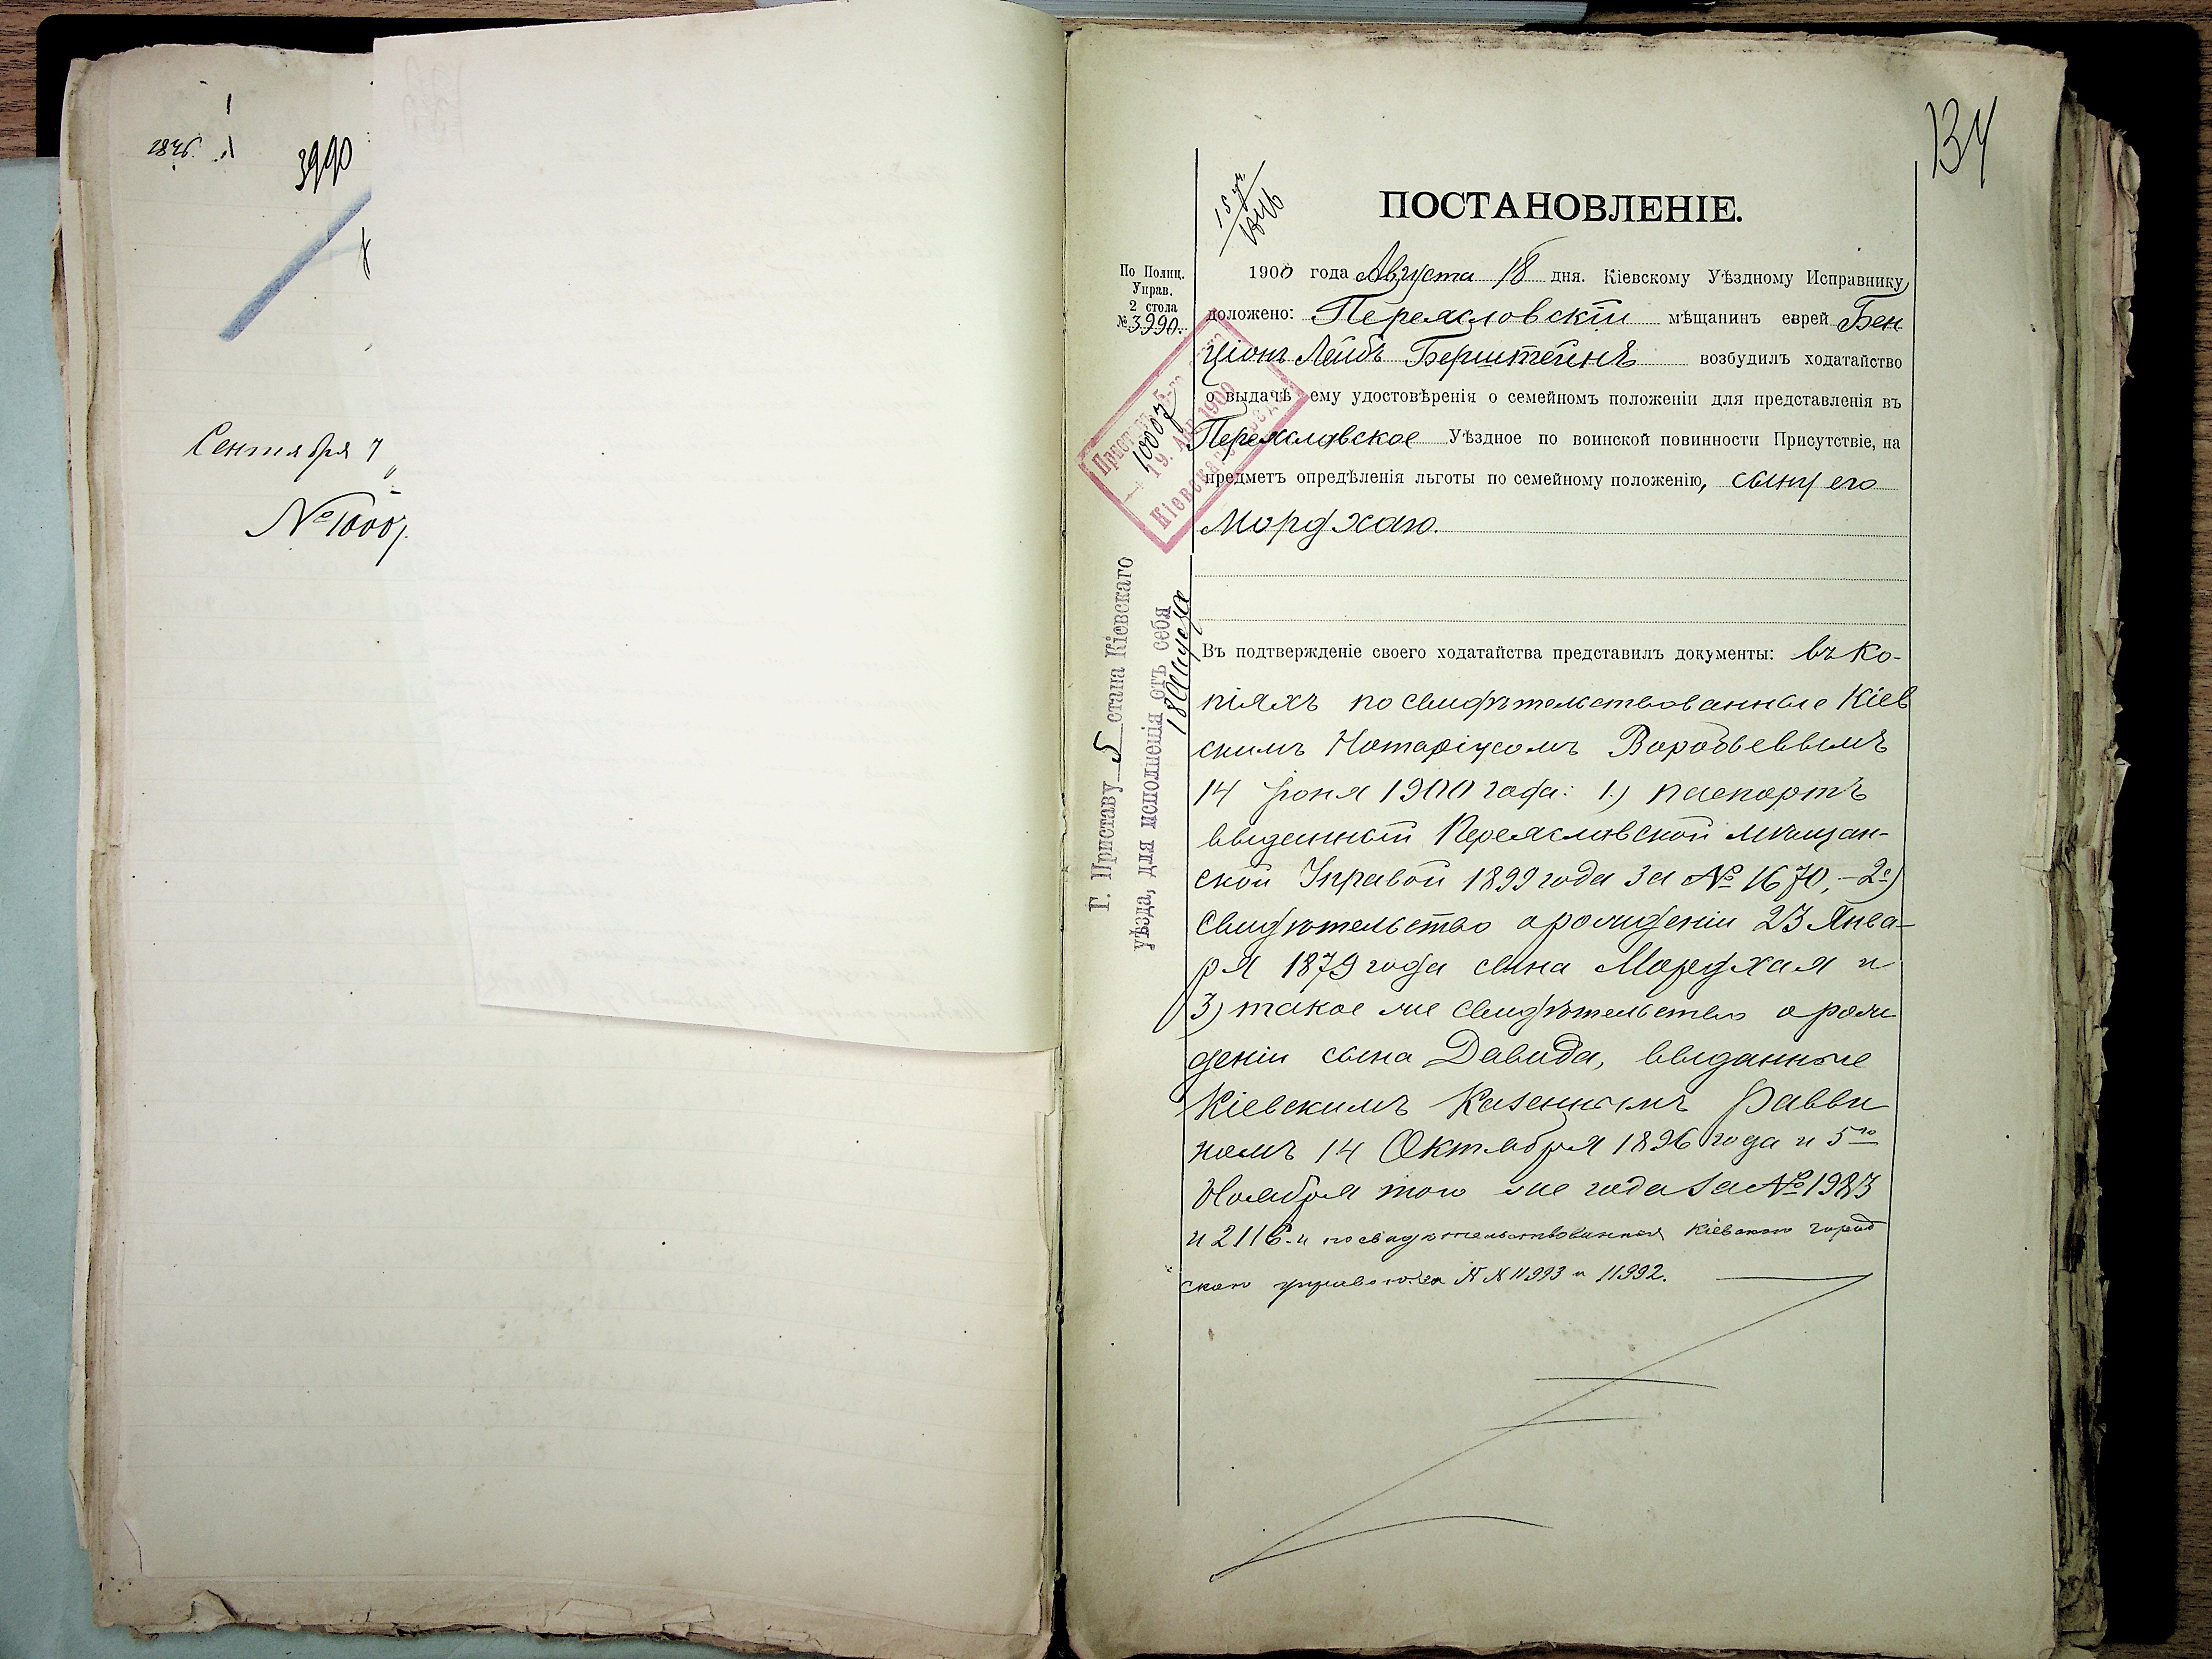 3990
Сентября 7
№ 10007.
134
ПОСТАНОВЛЕНІЕ.
По Полиц.
Управ.
2 стола
№ 3990.
1900 года Августа 18 дня. Кіевскому Уѣздному Исправнику
доложено: Переясловскій мѣщанинъ еврей Бен
ціонъ Лейбъ Берштейнъ возбудилъ ходатайство
о выдачѣ ему удостовѣренія о семейномъ положеніи для представленія въ
Переяславское Уѣздное по воинской повинности Присутствіе, на
предметъ опредѣленія льготы по семейному положенію, сыну его
Мордхаю.
Приставъ 5-го
10007
19. АВГ 1900
Кіевскаго уѣзда
Г. Приставу 5 стана Кіевскаго
уѣзда, для исполненія отъ себя
Въ подтвержденіе своего ходатайства представилъ документы: въ ко-
піяхъ посвидѣтельствованные Кіев
скимъ Нотаріусомъ Воробьевымъ
14 Іюня 1900 года: 1.) паспортъ
выданный Переяславской мѣщан-
ской Управой 1899 года за № 1670, – 2е)
свидѣтельство о рожденіи 23 Янва-
ря 1879 года сына Мордхая и
3) такое же свидѣтельство о рож
деніи сына Давида, выданные
Кіевскимъ Казеннымъ Равви
номъ 14 Октября 1896 года и 5го
Ноября того же года за № 1983
и 2116. и посвидѣтельствованныя Кіевскою город
скою управою за № № 11993 и 11992.